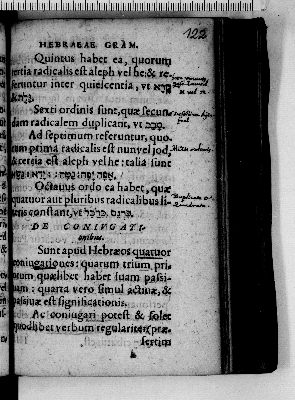 122
HEBRAEAE GRAM.
Quintus habet ea, quorum
tertia radicalis est aleph vel he: & re-
feruntur inter quiescentia, vt קרא
Sexti ordinis sunt, quæ secun-
dam radicalem duplicant, vt סבב.
Ad septimum referuntur, quo-
rum prima radicalis est nun vel jod,
& tertia est aleph vel he: talia sunt
Octauus ordo ea habet, quæ
quatuor aut pluribus radicalibus li-
teris constant, vt
DE CONIVGATI-
onibus.
Sunt apud Hebræos quatuor
coniugationes: quarum trium pri-
mum quælibet habet suam passi-
uam: quarta vero simul actiuæ, &
passiuæ est significationis.
Ac coniugari potest & solet
quodlibet verbum regulariter (præ-
sertim